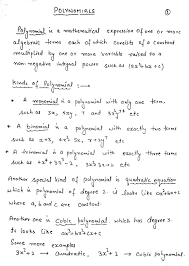 POLYNOMIALS
①
Polynomial is a mathematical expression of one or more
algebraic terms each of which consists of a constant
multiplied by one or more variable raised to a
non-negative integral power such as (ax²+bx+c)
Kinds of Polynomial :→
→ A monomial is a polynomial with only one term,
such as 3x, 5xy, 7 and etc
→ A binomial is a polynomial with exactly two terms
such as etc
→ A trinomial is a polynomial with exactly three terms
such as etc
Another special kind of polynomial is quadratic equation
which is polynomial of degree 2. It looks like ax²+bx+c
where a, b and c are constant
Another one is Cubic polynomial. which has degree 3
It looks like ax³+bx²+cx+c
Some more examples
3x²+1 → Quadratic, 3x³+1 → Cubic polynomial.